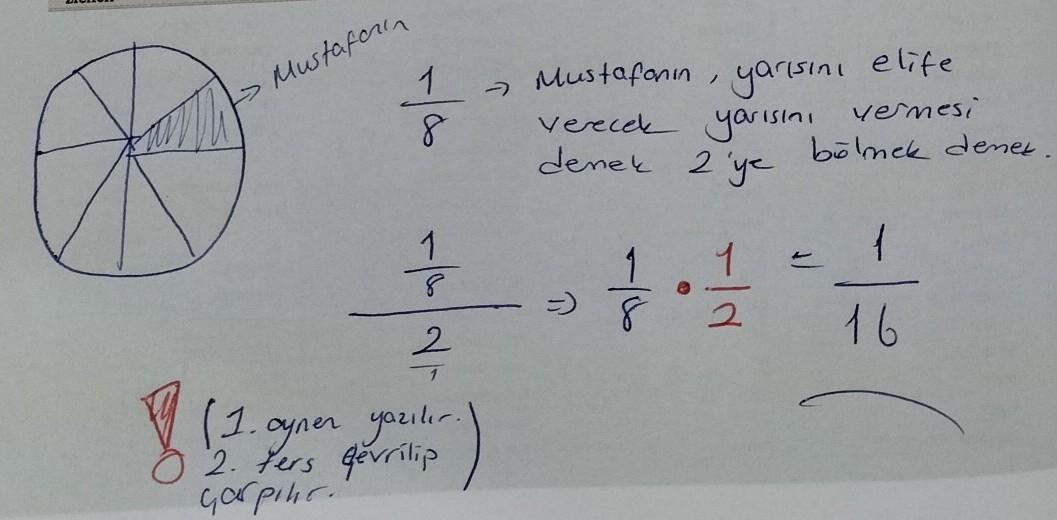 Mustafanın
1/8 → Mustafanın, yarısını elife
verecek yarısını vermesi
demek 2'ye bölmek demek.
1/8
2/1
⇒ 1/8 • 1/2 = 1/16
! (1. aynen yazılır.
2. ters çevrilip
çarpılır.)